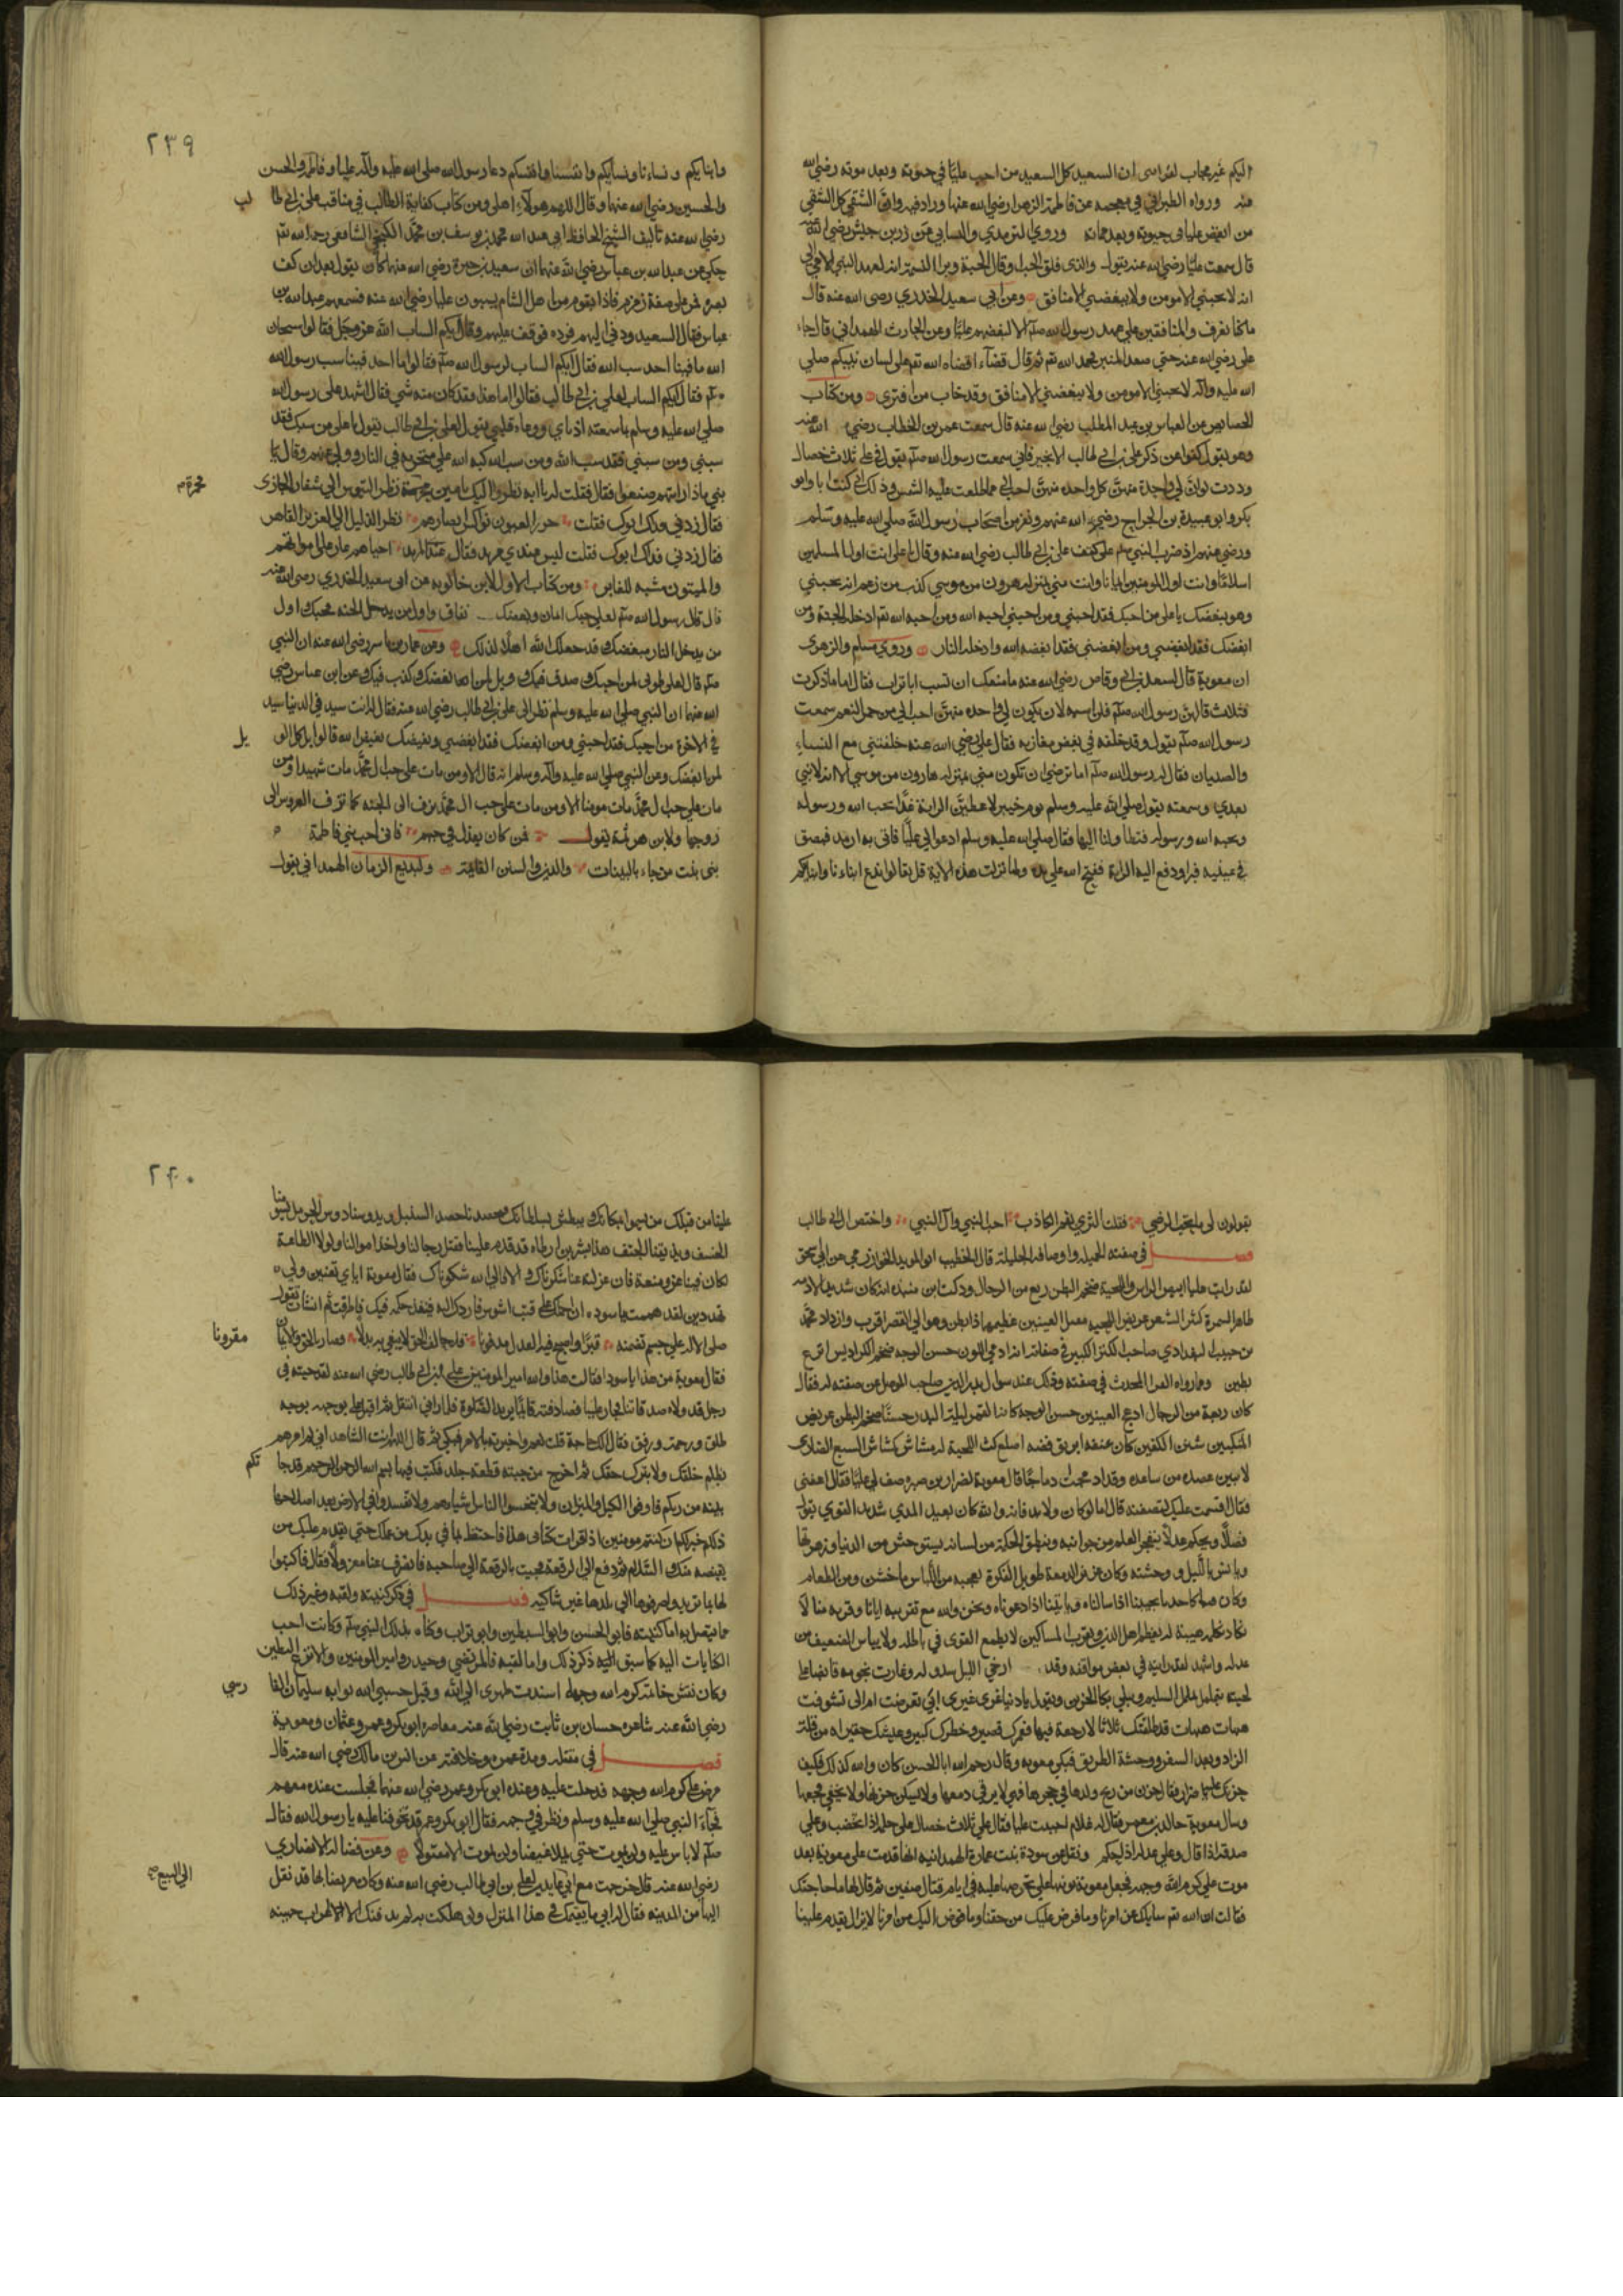 اليكم غير محاب لقرابتي ان السعيد كل السعيد من احب عليا في حيوته وبعد موته رضي الله
عنه ورواه الطبراني في معجمه عن فاطمة الزهرا رضي الله عنها وزاد فيه وان الشقي كل الشقي
من ابغض عليا في حيوته وبعد مماته وروي الترمذي والنسابي عن زر بن حبيش رضي الله عنه
قال سمعت عليا رضي الله عنه يقول والذي فلق الحبة وبرا النسمة انه لعهد النبي الامي الي
انه لا يحبني الا مومن ولا يبغضني الا منافق وعن ابي سعيد الخدري رضى الله عنه قال
ما كنا نعرف المنافقين على عهد رسول الله صلم الا ببغضهم عليا وعن الحارث الهمداني قال جاء
على رضي الله عنه حتي صعد المنبر فحمد الله تم ثم قال قضاء قضاه الله تعم على لسان نبيكم صلي
الله عليه واله لا يحبني الا مومن ولا يبغضني الا منافق وقد خاب من افترى ومن كتاب
الخصايص عن العباس بن عبد المطلب رضي الله عنه قال سمعت عمر بن الخطاب رضي الله عنه
وهو يقول كفوا عن ذكر علي بن ابي طالب الا بخير فاني سمعت رسول الله صلم يقول في علي ثلاث خصال
وددت لو ان لي واحدة منهن كل واحده منهن احب الي مما طلعت عليه الشمس وذلك اني كنت انا وابو
بكر وابو عبيدة بن الجراح رضي الله عنهم ونفر من اصحاب رسول الله صلي الله عليه وسلم
اذ ضرب النبي صلم على كتف علي بن ابي طالب رضي الله عنه وقال يا علي انت اول المسلمين
اسلاما وانت اول المومنين ايمانا وانت مني بمنزلة هرون من موسي كذب من زعم انه يحبني
وهو يبغضك يا علي من احبك فقد احبني ومن احبني احبه الله ومن احبه الله تم ادخله الجنة ومن
ابغضك فقد ابغضني ومن ابغضني فقد ابغضه الله وادخله النار وروي مسلم والزهرى
ان معوية قال لسعد بن ابي وقاص رضي الله عنه ما منعك ان تسب ابا تراب فقال اما ما ذكرت
فثلاث قالهن رسول الله صلم فلن اسبه لان يكون لي واحده منهن احب الي من حمر النعم سمعت
رسول الله صلم يقول وقد خلفه في بعض مغازيه فقال علي رضي الله عنه خلفتني مع النساء
والصبيان فقال له رسول الله صلم اما ترضي ان تكون مني بمنزلة هارون من موسي الا انه لا نبي
بعدي وسمعته يقول صلي الله عليه وسلم يوم خيبر لاعطين الراية غدا يحب الله ورسوله
ويحبه الله ورسوله فتطاولنا اليها فقال صلي الله عليه وسلم ادعوا لي عليا فاتى به ارمد فبصق
في عينيه فبرا ودفع اليه الراية ففتح الله علي يده ولما نزلت هذه الاية قل تعالوا ندع ابناءنا وابناءكم
٢٣٩
وابنايكم ونساءنا ونسايكم وانفسنا وانفسكم دعا رسول الله صلى الله عليه واله عليا وفاطمة والحسن
والحسين رضي الله عنها وقال اللهم هولاء اهلى ومن كتاب كفاية الطالب في مناقب علي بن ابي طا
لب
رضي الله عنه تاليف الشيخ الحافظ ابي عبد الله محمد بن يوسف بن محمد الكنجي الشافعي رحمه الله تم
حكي عن عبد الله بن عباس رضي الله عنهما ان سعيد بن جبيرة رضى الله عنهما كان يقول بعد ان كف
بصره فمر على صفة زمزم فاذا بقوم من اهل الشام يسبون عليا رضي الله عنه فسمعهم عبد الله بن
عباس فقال لسعيد ردني اليهم فرده فوقف عليهم وقال ايكم الساب الله عز وجل فقالوا سبحان
الله ما فينا احد سب الله فقال ايكم الساب لرسول الله صلم فقالوا ما احد فينا سب رسول الله
صلم فقال ايكم الساب لعلي بن ابي طالب فقالوا اما هذا فقد كان منه شي فقال اشهد على رسول الله
صلي الله عليه وسلم بما سمعته اذناي ووعاه قلبي يقول لعلي بن ابي طالب يا علي من سبك فقد
سبني ومن سبني فقد سب الله ومن سب الله كبه الله علي منخريه في النار وولي عنهم وقال يا
بني ماذا رايتهم صنعوا فقال فقلت له يا ابه نظروا اليك باعين محمرة نظر التيوس الي شفار الجازى
محمرة
فقال زدني فداك ابوك فقلت خزر العيون نواكس ابصارهم نظر الذليل الي العزيز القاهر
فقال زدني فداك ابوك فقلت ليس عندي مزيد فقال عندي المزيد احياهم عار على امواتهم
والميتون مسبة للغابر ومن كتاب الال لابن خالويه عن ابى سعيد الخدري رضى الله عنه
قال قال رسول الله صلم لعلي حبك ايمان وبغضك نفاق واول من يدخل الجنه محبك واول
من يدخل النار مبغضك وقد جعلك الله اهلا لذلك وعن عمار بن ياسر رضي الله عنه ان النبي
صلم قال لعلي طوبى لمن احبك وصدق فيك وويل لمن ابغضك وكذب فيك وعن ابن عباس رضي
الله عنهما ان النبي صلي الله عليه وسلم نظر الى علي بن ابي طالب رضي الله عنه فقال له انت سيد في الدنيا سيد
في الاخرة من احبك فقد احبني ومن ابغضك فقد ابغضني وبغيضك بغيض الله فالويل كل الو
يل
لمن ابغضك وعن النبي صلي الله عليه واله وسلم انه قال الا ومن مات على حب ال محمد مات شهيدا ومن
مات على حب ال محمد مات مومنا الا ومن مات على حب ال محمد يزف الى الجنه كما تزف العروس الى
زوجها ولابن هرثمة يقول فمن كان يعذل في حبهم فاني احب بني فاطمة
بني بنت من جاء بالبينات والدين والسنن القايمة ولبديع الزمان الهمداني يقول
يقولون لي ما تحب الوصي فقلت الثري بفم الكاذب احب النبي وال النبي واختص ال ابي طالب
فصل في صفته الجميله واوصافه الجليلة قال الخطيب ابو المويد الخوارزمي عن ابي اسحق
لقد رايت عليا ابيض الراس واللحية ضخم البطن ربع من الرجال وذكر ابن منده انه كان شديد الادمه
ظاهر السمرة كثير الشعر عريض اللحيه عظيم العينين عظيمهما ذا بطن وهو الي القصر اقرب وازداد محمد
بن حبيب البغدادي صاحب المحبر الكبير في صفاته ادمي اللون حسن الوجه ضخم الكراديس انزع
بطين ومما رواه العز المحدث في صفته وذلك عند سوال بدر الدين صاحب الموصل عن صفته له فقال
كان ربعة من الرجال ادعج العينين حسن الوجه كانه القمر ليلة البدر حسنا ضخم البطن عريض
المنكبين شثن الكفين كان عنقه ابريق فضه اصلع كث اللحية له مشاش كمشاش السبع الضارى
لا يبين عضده من ساعده وقد ادمجت دماجا قال معوية لضرار بن ضمره صف لي عليا فقال اعفني
فقال اقسمت عليك لتصفنه قال اما اذ كان ولا بد فانه والله كان بعيد المدي شديد القوي يقول
فصلا ويحكم عدلا يتفجر العلم من جوانبه وينطق الحكمة من لسانه يستوحش من الدنيا وزهرتها
ويانس بالليل ووحشته وكان غزير الدمعة طويل الفكرة يعجبه من اللباس ما خشن ومن الطعام
وكان فينا كاحدنا يجيبنا اذا سالناه وياتينا اذا دعوناه ونحن والله مع تقريبه ايانا وقربه منا لا
نكاد نكلمه هيبة له يعظم اهل الدين ويقرب المساكين لا يطمع القوى في باطله ولا يياس الضعيف من
عدله واشهد لقد رايته في بعض مواقفه وقد ارخي الليل سدوله وغارت نجومه قابضا على
لحيته يتململ تململ السليم ويبكي بكا الحزين ويقول يا دنيا غري غيري ابي تعرضت ام الى تشوقت
هيهات هيهات قد طلقتك ثلاثا لا رجعة فيها فعمرك قصير وخطرك كبير وعيشك حقير اه من قلة
الزاد وبعد السفر ووحشة الطريق فبكي معويه وقال رحم الله ابا الحسن كان والله كذلك فكيف
حزنك عليه يا ضرار فقال حزن من ذبح ولدها في حجرها فهي لا يرقى دمعها ولا يسكن حزنها ولا يخفي فجعها
وسال معوية خالد بن معمر فقال له علام احببت عليا فقال على ثلاث خصال علي حلمه اذا غضب وعلي
صدقه اذا قال وعلي عدله اذا حكم ونقل عن سودة بنت عمارة الهمدانيه انها قدمت على معوية بعد
موت علي كرم الله وجهه فجعل معوية يونبها على تحريضها عليه في ايام قتال صفين ثم قال لها ما حاجتك
فقالت ان الله تم سايلك عن امرنا وما فرض عليك من حقنا وما فوض اليك من امرنا لا يزال يقدم علينا
٢٤٠
علينا من قبلك من يسموا بمكانك ويبطش بسلطانك فيحصدنا حصد السنبل ويدوسنا دوس الحرمل يسومنا
الخسف ويذيقنا الحتف هذا بشر بن ارطاه قد قدم علينا فقتل رجالنا واخذ اموالنا ولولا الطاعة
لكان فينا عز ومنعة فان عزلته عنا شكرناك والا فالي الله شكوناك فقال معوية اياي تعنين ولي
تهددين لقد هممت يا سوده ان احملك على قتب اشوس فاردك اليه فينفذ حكمه فيك فاطرقت ثم انشات تقول
صلى الاله علي جسم تضمنه قبر واصبح فيه العدل مدفونا قد حالف الحق لا يبغي به بدلا فصار بالحق والايمان
مقرونا
فقال معوية من هذا يا سودا فقالت هذا والله امير المومنين علي بن ابي طالب رضي الله عنه لقد جيته فى
رجل قد ولاه صدقاتنا فجار علينا فصادفته قائما يريد الصلوة فلما راني انفتل ثم اقبل علي بوجهه بوجه
طلق ورحمة ورفق فقال الك حاجة قلت نعم واخبرته بالامر فبكي ثم قال اللهم انت الشاهد اني لم امرهم
بظلم خلقك ولا بترك حقك ثم اخرج من جيبه قطعة جلد فكتب فيها بسم الله الرحمن الرحيم قد جا
تكم
بينه من ربكم فاوفوا الكيل والميزان ولا تبخسوا الناس اشياءهم ولا تفسدوا في الارض بعد اصلاحها
ذلكم خير لكم ان كنتم مومنين اذا قرات كتابى هذا فاحتفظ بما في يدك من عملك حتي يقدم عليك من
يقبضه منك والسلام ثم دفع الي الرقعة فجيت بالرقعة الي صاحبه فانصرف عنا معزولا فقال اكتبوا
لها بما تريد واصرفوها الي بلدها غير شاكيه فصل في ذكر كنيته ولقبه وغير ذلك
مما يتصل به اما كنيته فابو الحسن وابو السبطين وابو تراب وكناه بذلك النبي صلم وكانت احب
الكنايات اليه كما سبق اليه ذكر ذلك واما لقبه فالمرتضي وحيدر وامير المومنين والانزع البطين
وكان نقش خاتمه كرم الله وجهه اسندت ظهرى الي الله وقيل حسبي الله بوابه سليمان الفا
رسي
رضي الله عنه شاعره حسان بن ثابت رضي الله عنه معاصره ابو بكر وعمر وعثمان ومعوية
فصل في مقتله ومدة عمره وخلافته عن انس بن مالك رضي الله عنه قال
مرض علي كرم الله وجهه فدخلت عليه وعنده ابو بكر وعمر رضي الله عنهما فجلست عنده معهم
فجاء النبي صلي الله عليه وسلم ونظر في وجهه فقال ابو بكر وعمر قد تخوفنا عليه يا رسول الله فقال
صلم لا باس عليه ولن يموت حتي يملا غيضا ولن يموت الا مقتولا وعن فضالة الانصاري
رضي الله عنه قال خرجت مع ابي عايدين لعلي بن ابي طالب رضى الله عنه وكان مريضا بها قد نقل
الي ينبع
اليها من المدينه فقال له ابي ما يقيمك في هذا المنزل ولو هلكت به لم يدفنك الا الاعراب جهينه